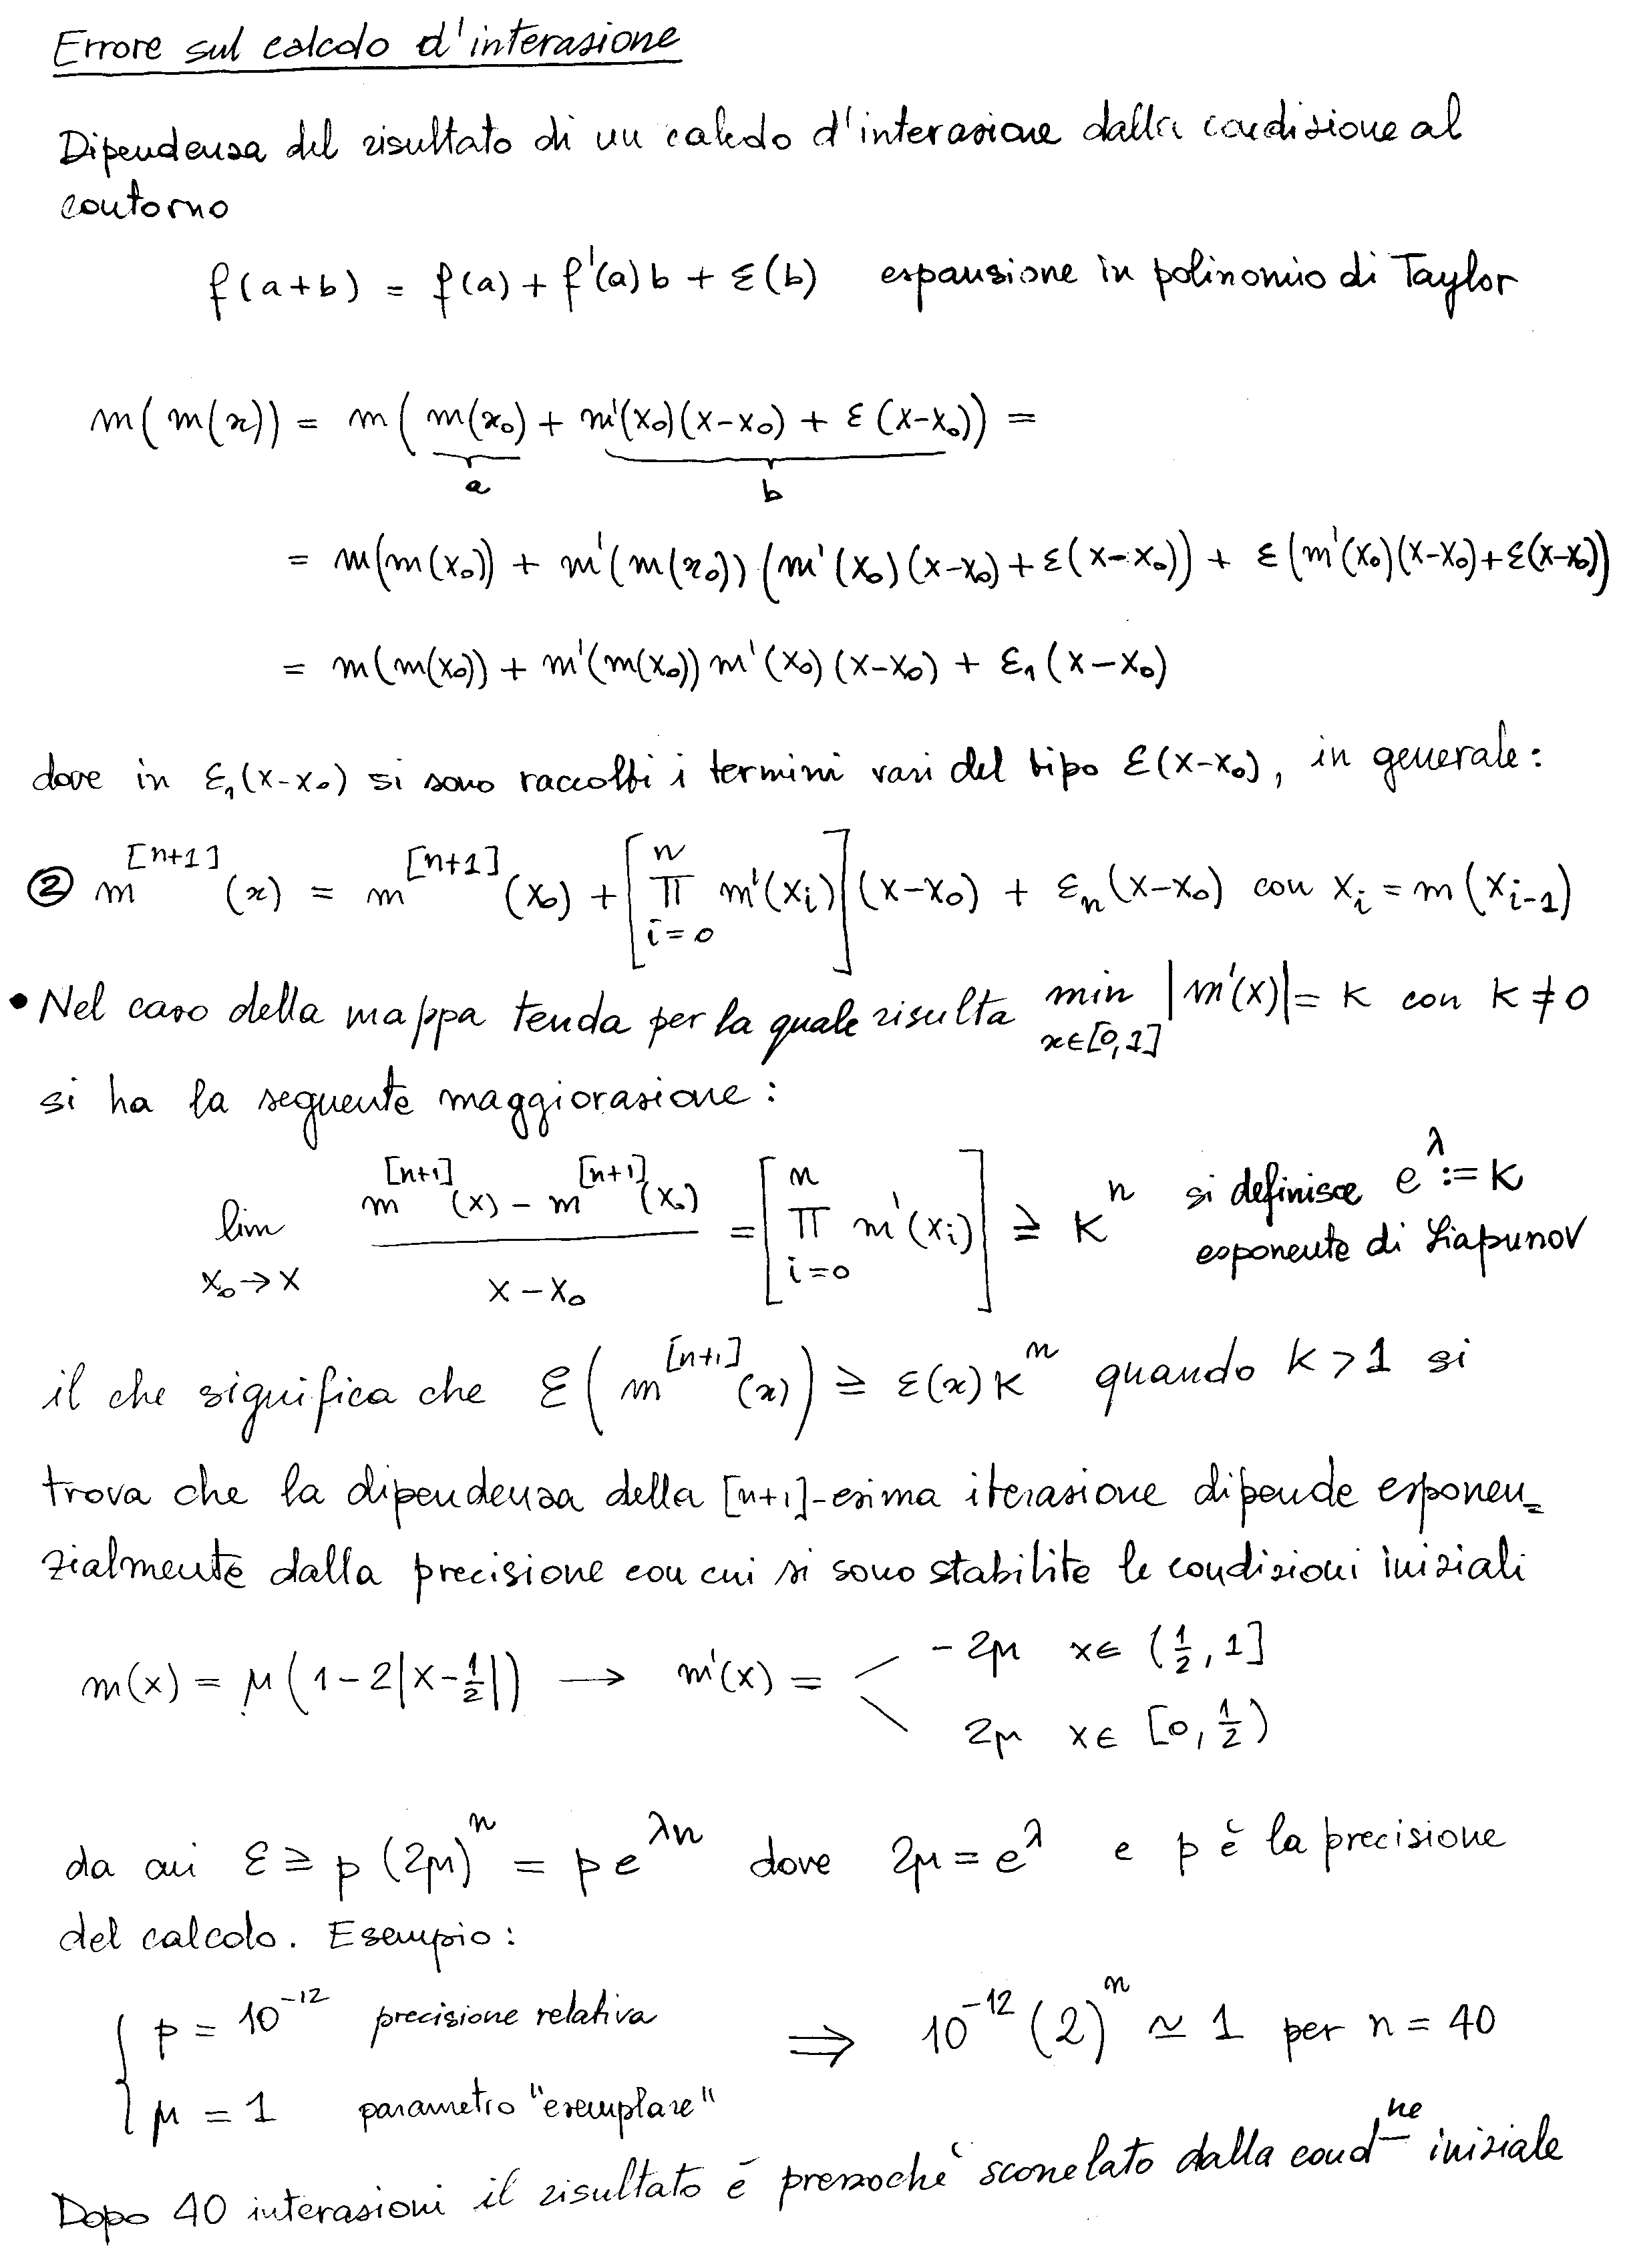 Errore sul calcolo d'interazione
Dipendenza del risultato di un calcolo d'interazione dalla condizione al
contorno
f(a+b) = f(a) + f'(a)b + ε(b) espansione in polinomio di Taylor
m(m(x)) = m(m(x₀) + m'(x₀)(x-x₀) + ε(x-x₀)) =
a b
= m(m(x₀)) + m'(m(x₀))(m'(x₀)(x-x₀)+ε(x-x₀)) + ε(m'(x₀)(x-x₀)+ε(x-x₀))
= m(m(x₀)) + m'(m(x₀))m'(x₀)(x-x₀) + ε₁(x-x₀)
dove in ε₁(x-x₀) si sono raccolti i termini vari del tipo ε(x-x₀), in generale:
② m^[n+1](x) = m^[n+1](x₀) + [∏_{i=0}^{n} m'(xᵢ)](x-x₀) + εₙ(x-x₀) con xᵢ = m(xᵢ₋₁)
• Nel caso della mappa tenda per la quale risulta min_{x∈[0,1]} |m'(x)| = K con K ≠ 0
si ha la seguente maggiorazione:
lim_{x₀→x} (m^[n+1](x) - m^[n+1](x₀)) / (x-x₀) = [∏_{i=0}^{n} m'(xᵢ)] ≥ K^n si definisce e^λ := K
esponente di Liapunov
il che significa che ε(m^[n+1](x)) ≥ ε(x)K^n quando K>1 si
trova che la dipendenza della [n+1]-esima iterazione dipende esponen=
zialmente dalla precisione con cui si sono stabilite le condizioni iniziali
m(x) = μ(1-2|x-½|) → m'(x) = -2μ x∈(½,1]
2μ x∈[0,½)
da cui ε ≥ p(2μ)^n = pe^{λn} dove 2μ = e^λ e p è la precisione
del calcolo. Esempio:
p = 10⁻¹² precisione relativa ⇒ 10⁻¹²(2)^n ≃ 1 per n = 40
μ = 1 parametro "esemplare"
Dopo 40 interazioni il risultato è pressochè scorrelato dalla cond^ne iniziale